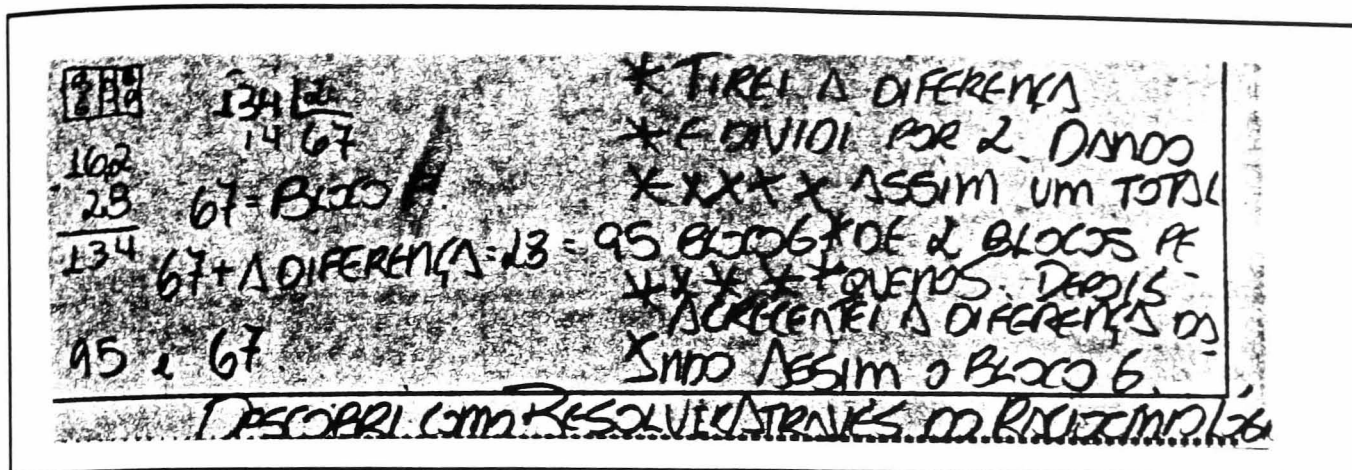 134 2
14 67
162
28
134
67 = BLOCO P
67 + A DIFERENÇA = 28 = 95 BLOCO G
95 e 67
* TIREI A DIFERENÇA
* E DIVIDI POR 2. DANDO
* * * * * ASSIM UM TOTAL
* DE 2 BLOCOS PE
* * * * * QUENOS. DEPOIS
ACRECENTEI A DIFERENÇA DA
* NDO ASSIM O BLOCO G.
DESCOBRI COMO RESOLVER ATRAVÉS DO RACIOCINIO LÓGI